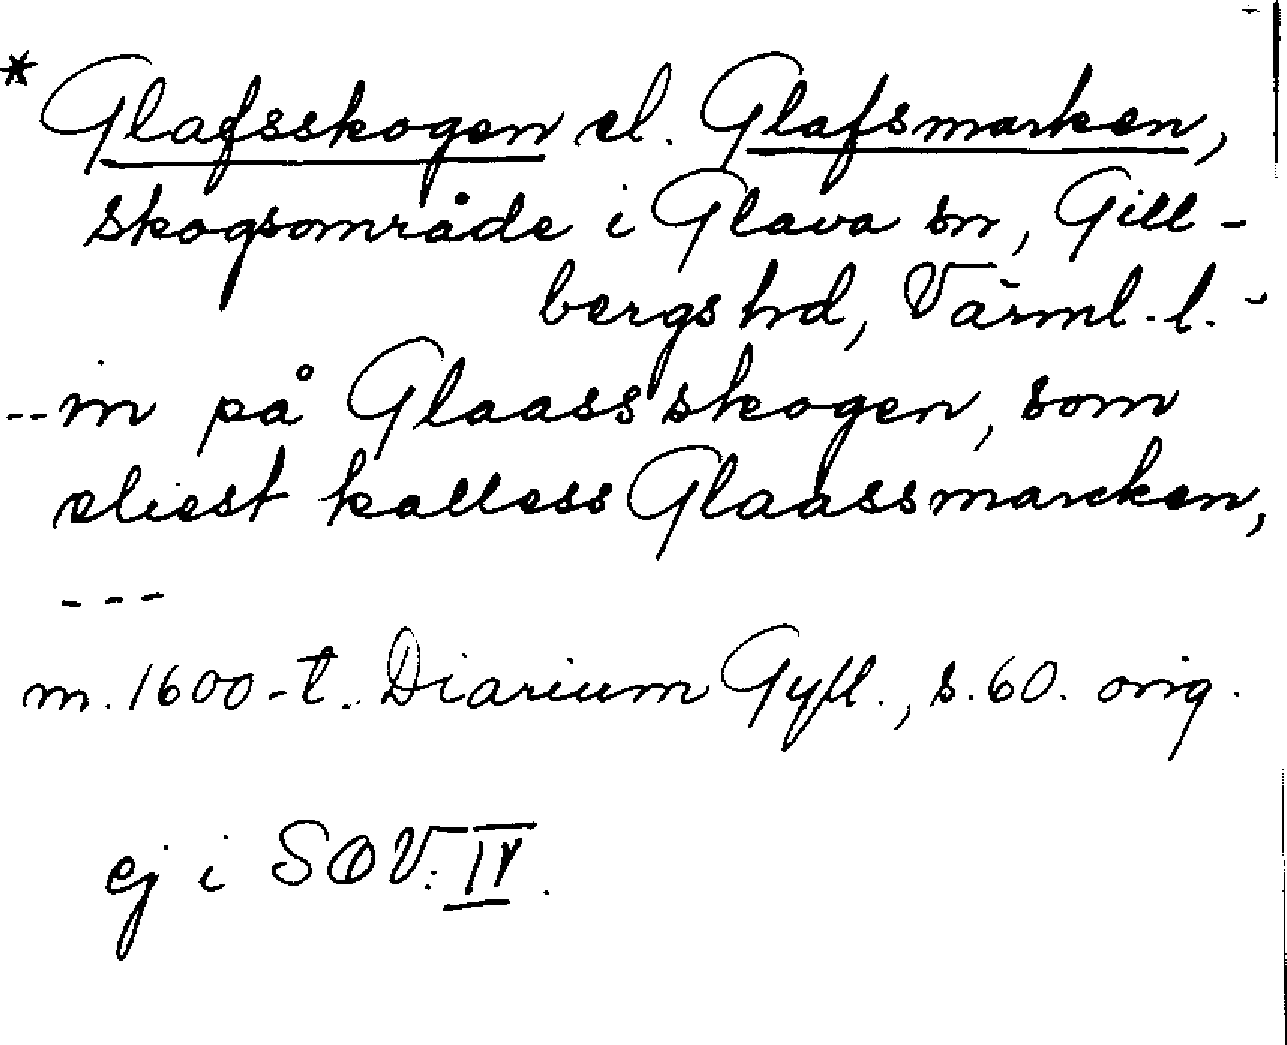 * Glafsskogen el. Glafsmarken,
skogsområde i Glava sn, Gill-
bergs hd, Värml. l.
-- in på Glaassskogen, som
eliest kalless Glaassmarcken,
---
m. 1600-t. Diarium Gyll., s. 60. orig.
ej i SOV: IV.